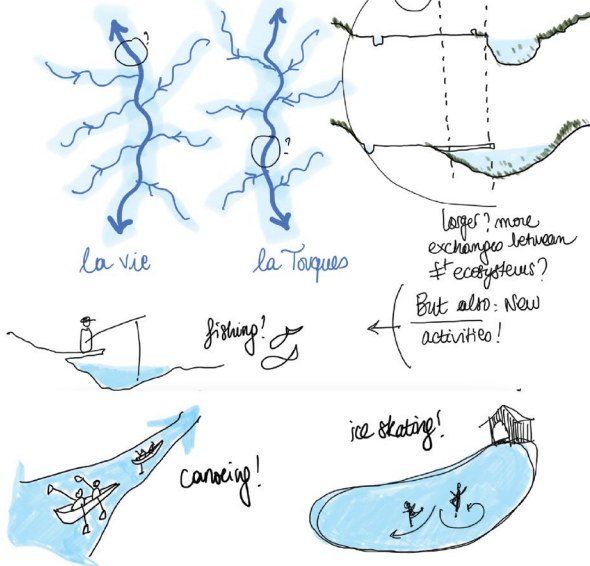 ?
?
la vie
la Touques
larger? more
exchanges between
≠t ecosystems?
But also: New
activities!
fishing!
canoeing!
ice skating!